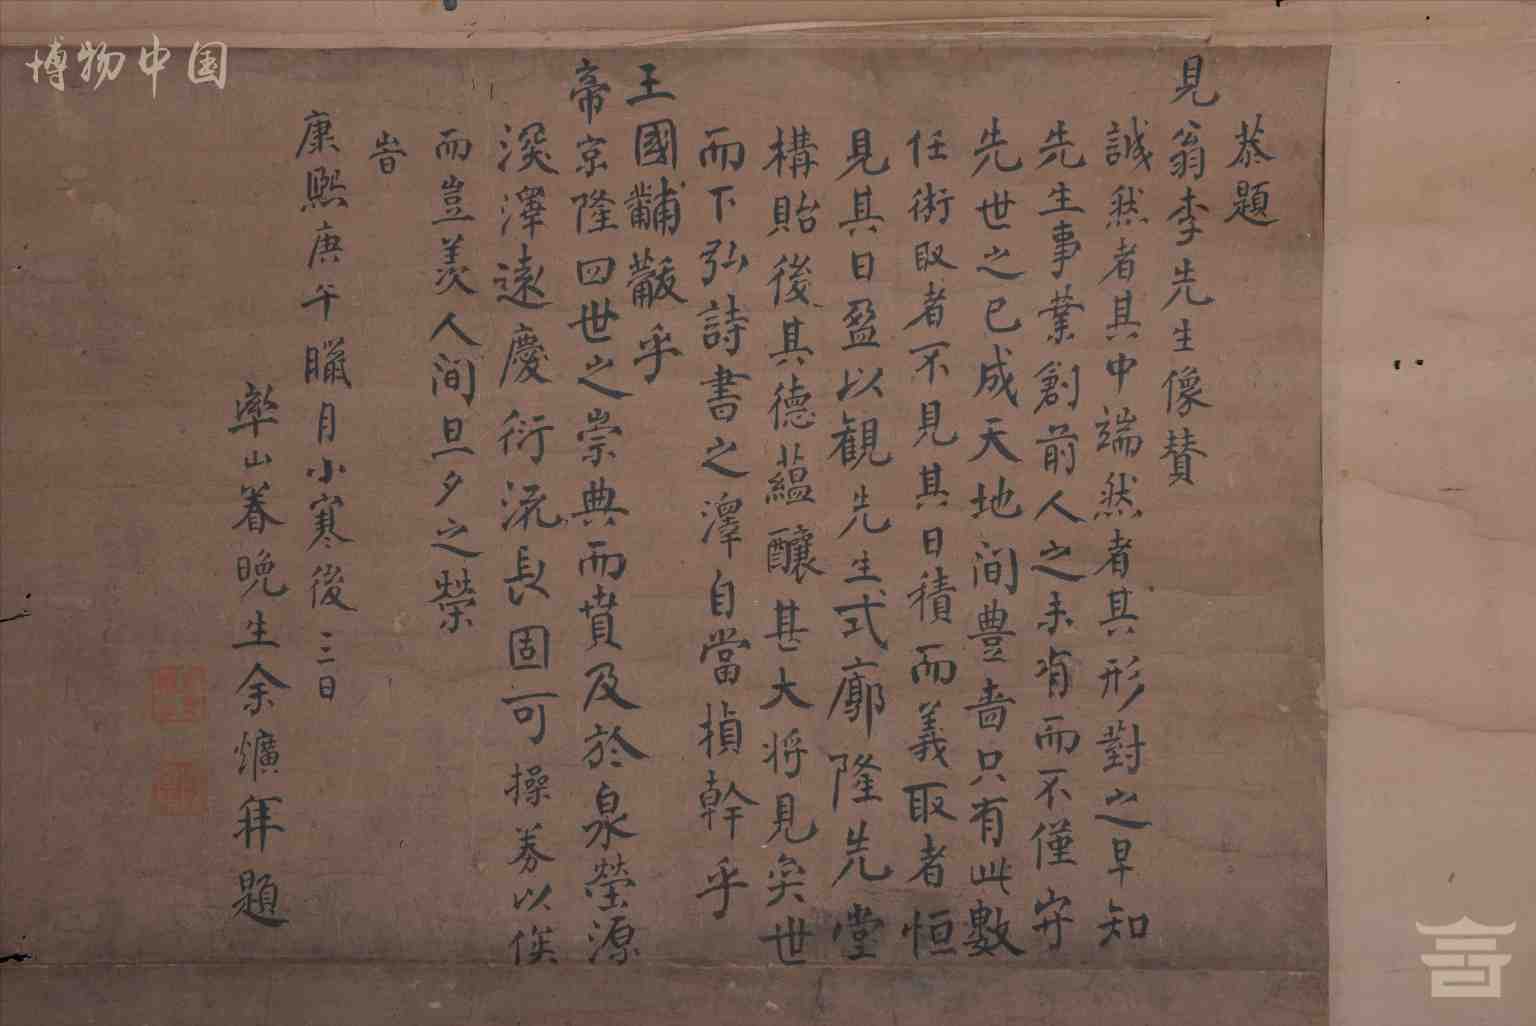 恭題
見翁李先生像賛
誠然者其中端然者其形對之早知
先生事業創前人之未有而不僅守
先世之已成天地间豊嗇只有此數
任術取者不見其日積而義取者恒
見其日盈以観先生式廓隆先堂
構貽後其德蘊釀甚大将見奕世
而下弘詩書之澤自當楨幹乎
王國黼黻乎
帝京隆四世之崇典而賁及於泉塋源
深澤遠慶衍流長固可操券以俟
而豈羨人间旦夕之榮
旹
康熙庚午臘月小寒後三日
山眷晚生余爌拜題
博物中国